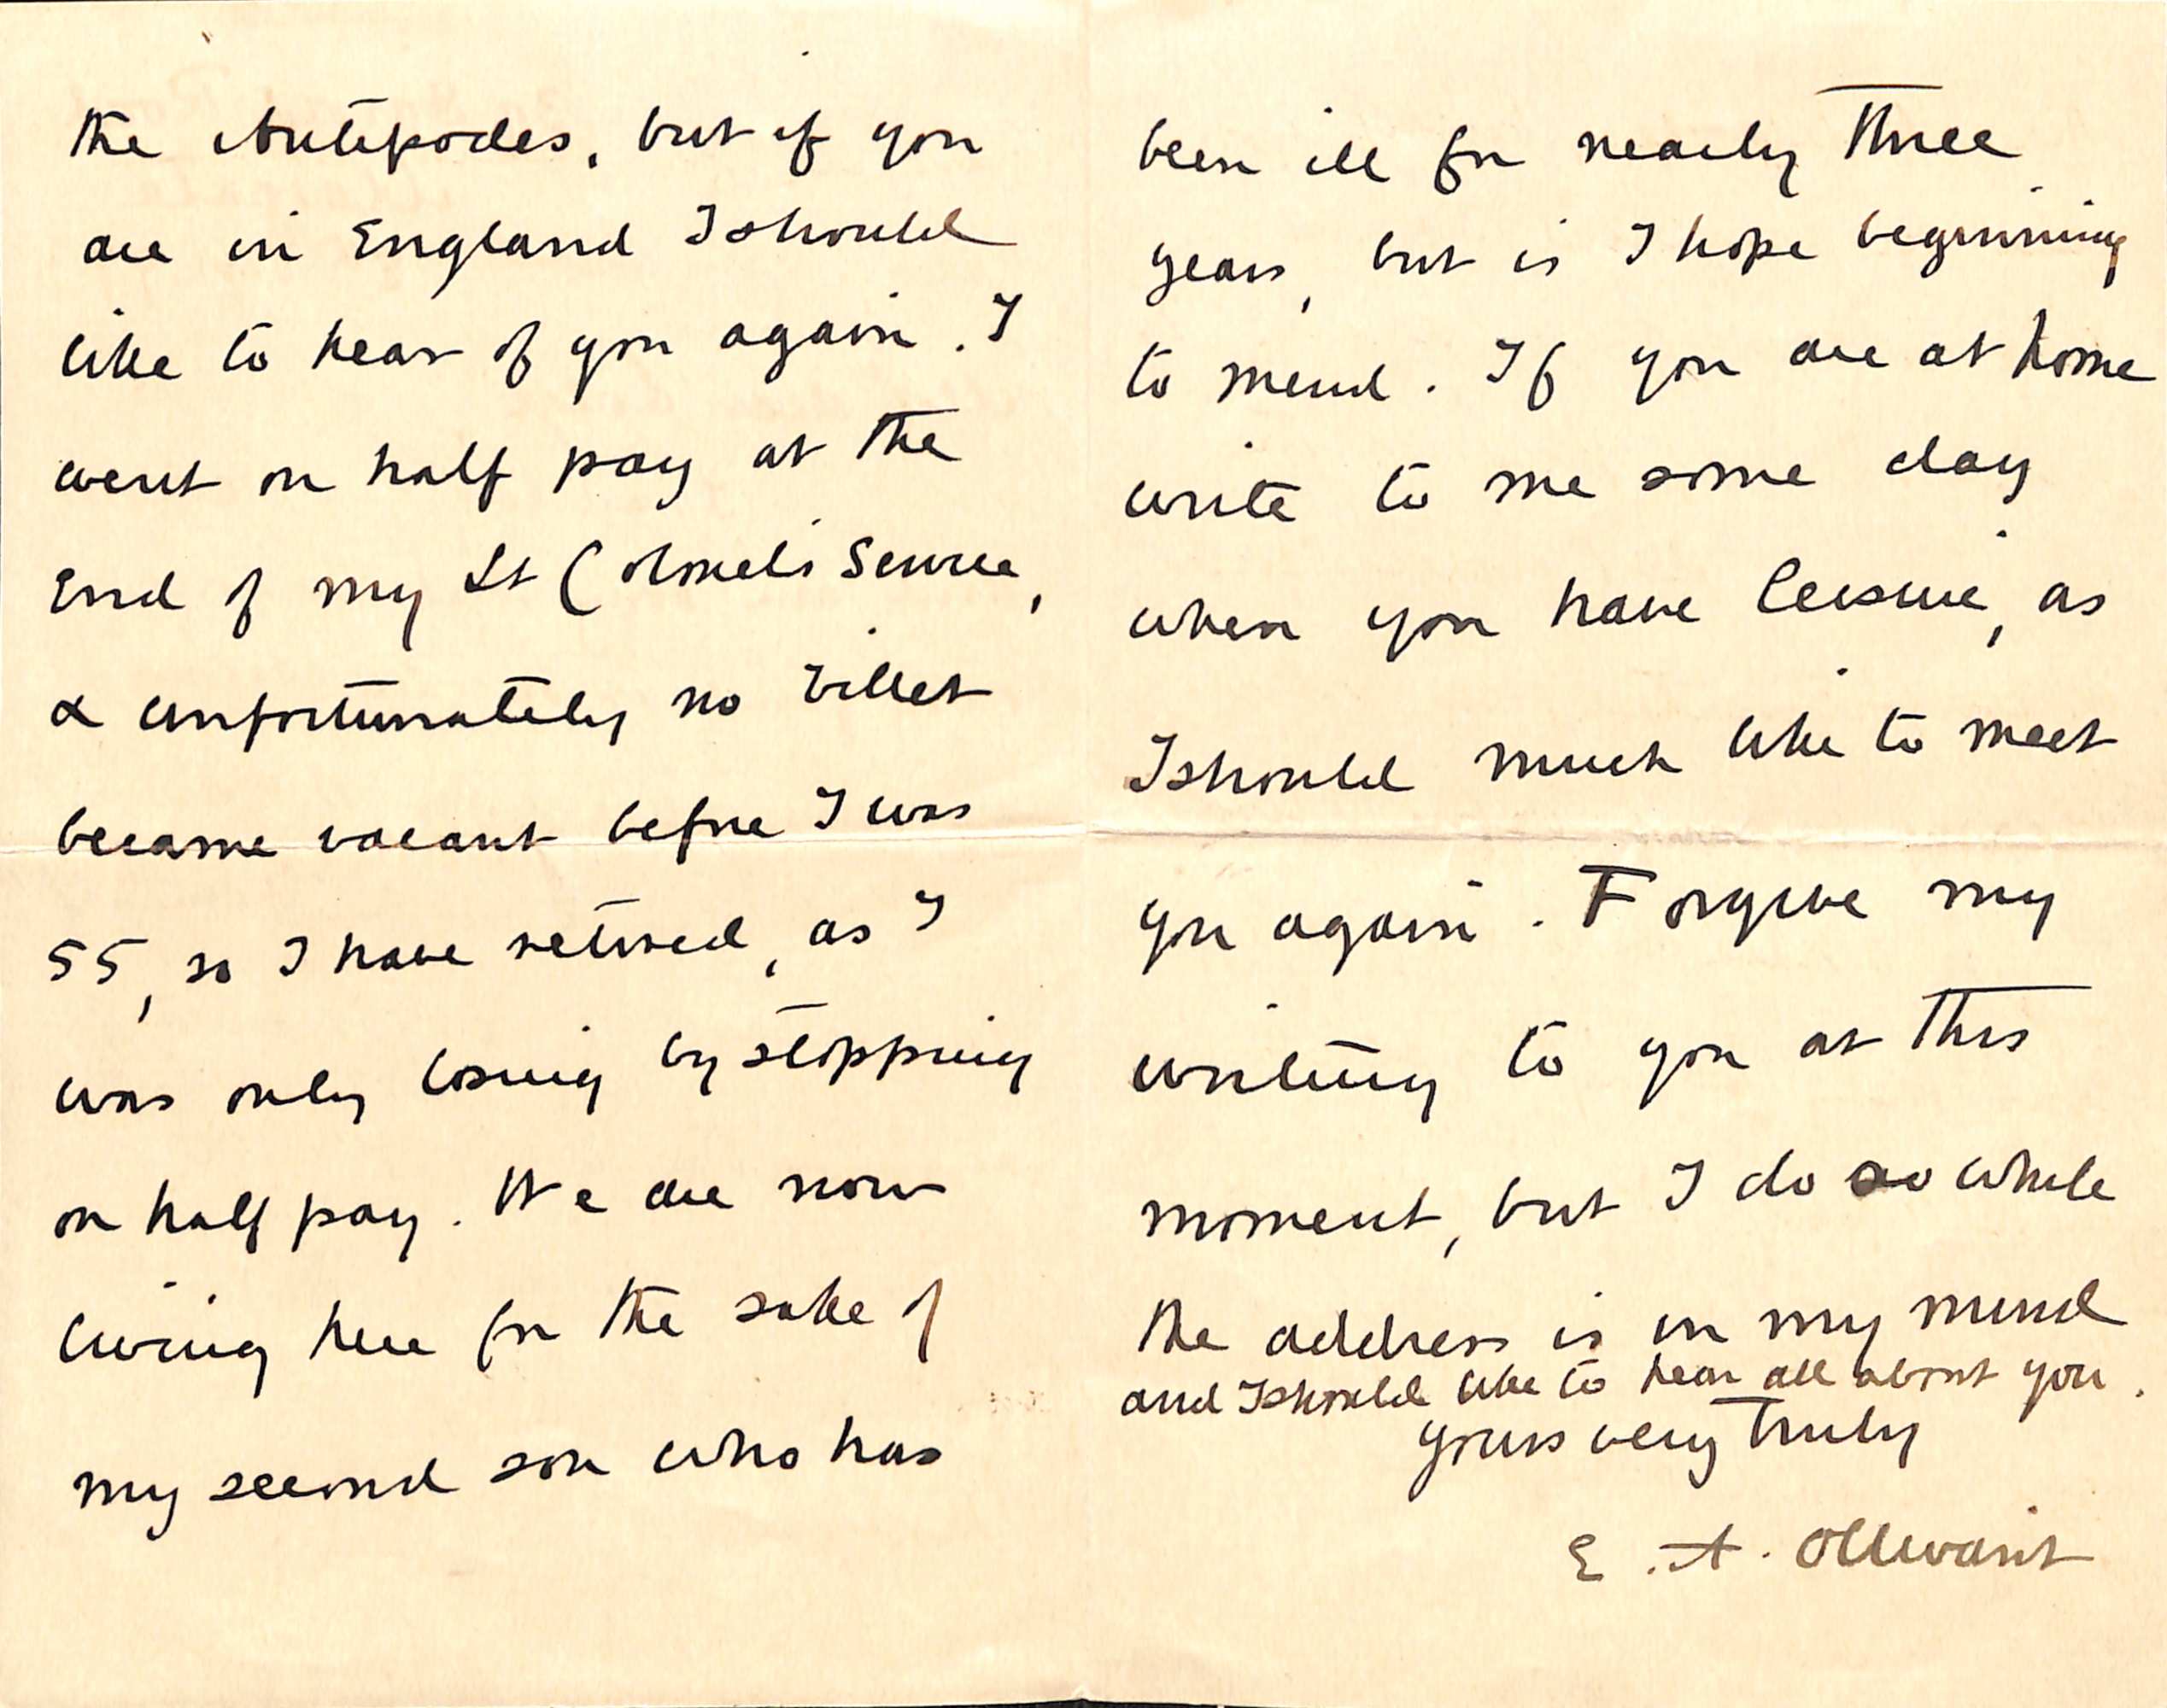 the Antipodes, but if you
are in England I should
like to hear of you again. I
went on half pay at the
end of my Lt Colonel's Service,
& unfortunately no billet
became vacant before I was
55, so I have retired, as I
was only losing by stopping
on half pay. We are now
living here for the sake of
my second son who has
been ill for nearly three
years, but is I hope beginning
to mend. If you are at home
write to me some day
when you have leisure, as
I should much like to meet
you again. Forgive my
writing to you at this
moment, but I do so while
the address is in my mind
and I should like to hear all about you.
yours very truly
E. A. Ollivant